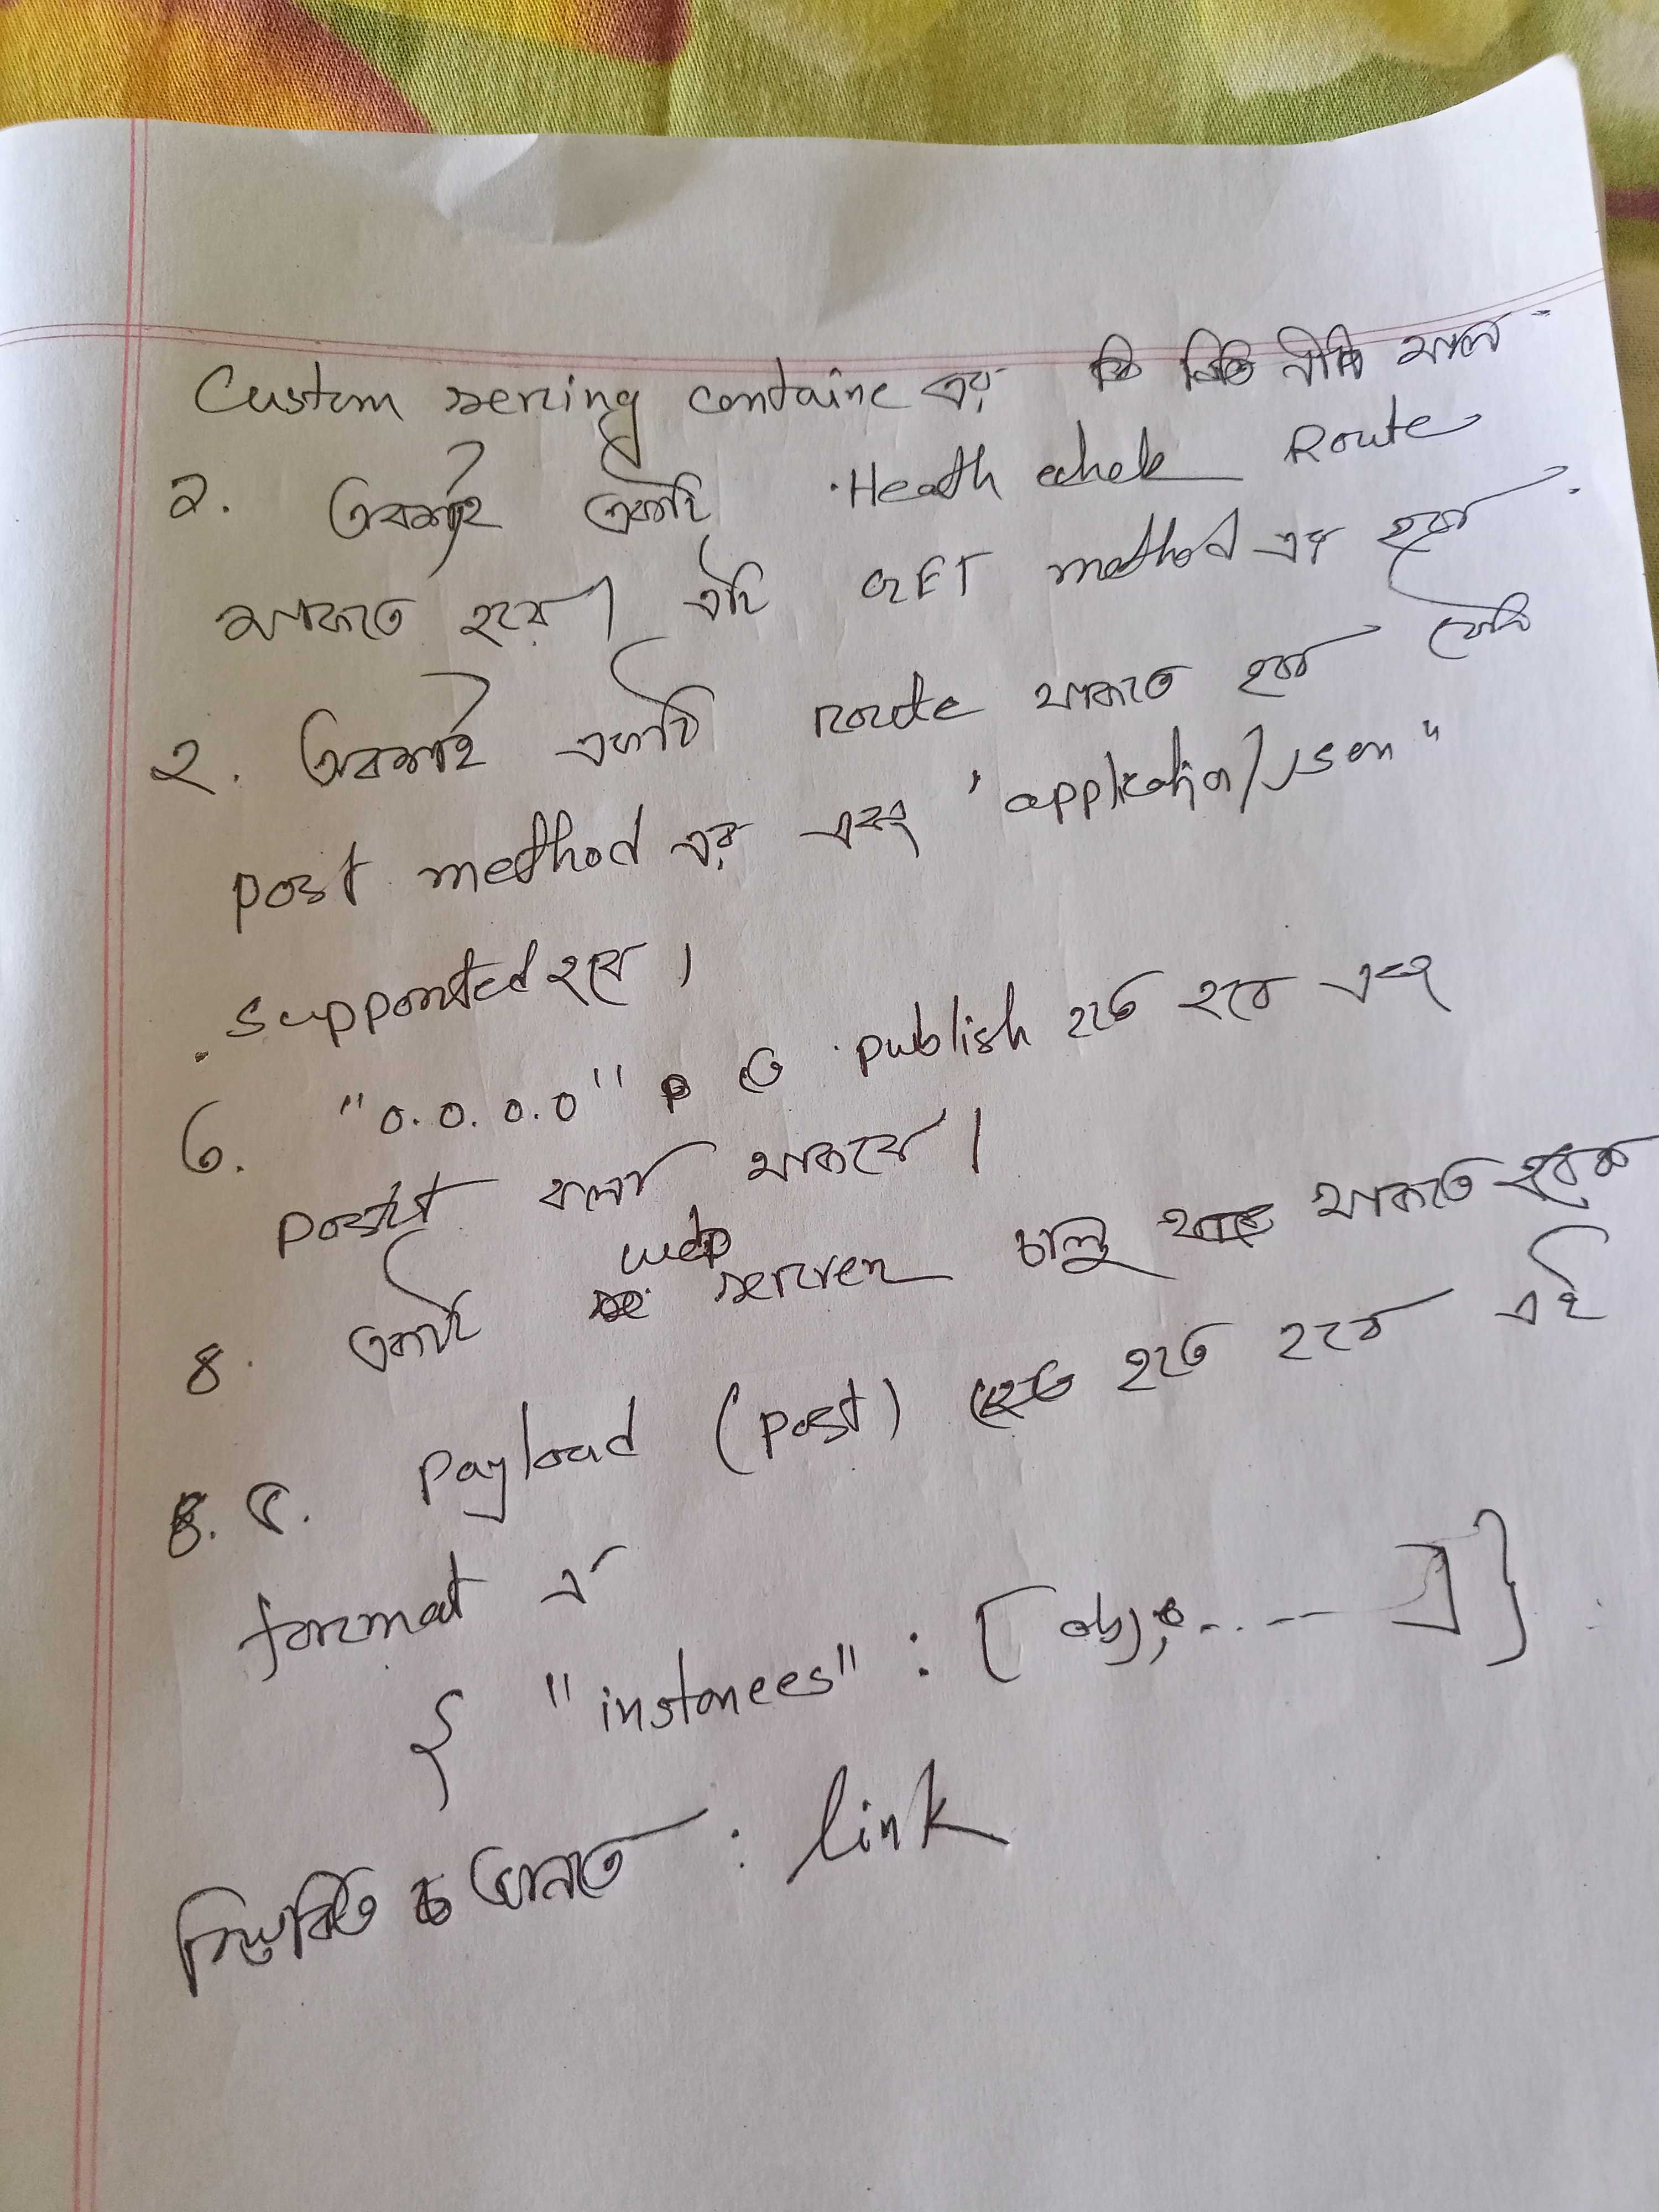 Custom serving containe এর নীতি মালা
১. অবশ্যই একটি Heath chek Route
থাকতে হবে। এটি GET method এর হবে
২. অবশ্যই একটি route থাকতে হবে যেটি
post method এর এবং "application/json"
supported হবে।
৩. "0.0.0.0" তে publish হতে হবে এবং
port বলা থাকবে।
৪. একটি web server চালু থাকতে হবে
৫. payload (post) হতে হবে এই
format এ
{ "instances" : [ obj, ..... ] }
বিস্তারিত জানতে : link